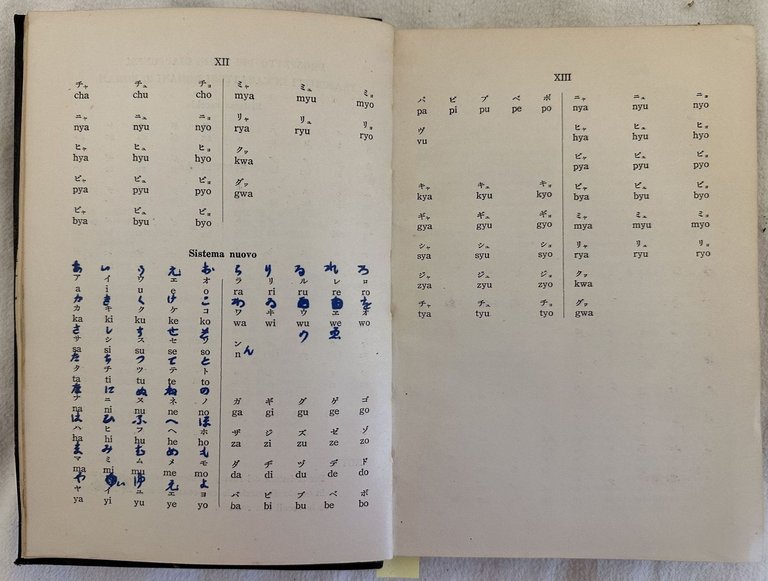 XII
チャ チュ チョ ミャ ミュ ミョ
cha chu cho mya myu myo
ニャ ニュ ニョ リャ リュ リョ
nya nyu nyo rya ryu ryo
ヒャ ヒュ ヒョ クヮ
hya hyu hyo kwa
ピャ ピュ ピョ グヮ
pya pyu pyo gwa
ビャ ビュ ビョ
bya byu byo
Sistema nuovo
あ い う え お ら り る れ ろ
ア イ ウ エ オ ラ リ ル レ ロ
a i u e o ra ri ru re ro
か き く け こ わ ゐ を
カ キ ク ケ コ ワ ヰ ウ ヱ ヲ
ka ki ku ke ko wa wi wu we wo
さ し す せ そ う ゑ
サ シ ス セ ソ ン
sa si su se so n ん
た ち つ て と
タ チ ツ テ ト
ta ti tu te to
な に ぬ ね の
ナ ニ ヌ ネ ノ ガ ギ グ ゲ ゴ
na ni nu ne no ga gi gu ge go
は ひ ふ へ ほ
ハ ヒ フ ヘ ホ ザ ジ ズ ゼ ゾ
ha hi hu he ho za zi zu ze zo
ま み む め も
マ ミ ム メ モ ダ ヂ ヅ デ ド
ma mi mu me mo da di du de do
や い ゆ え よ
ヤ イ ユ エ ヨ バ ビ ブ ベ ボ
ya yi yu ye yo ba bi bu be bo
XIII
パ ピ プ ペ ポ ニャ ニュ ニョ
pa pi pu pe po nya nyu nyo
ヴ ヒャ ヒュ ヒョ
vu hya hyu hyo
ピャ ピュ ピョ
pya pyu pyo
キャ キュ キョ ビャ ビュ ビョ
kya kyu kyo bya byu byo
ギャ ギュ ギョ ミャ ミュ ミョ
gya gyu gyo mya myu myo
シャ シュ ショ リャ リュ リョ
sya syu syo rya ryu ryo
ジャ ジュ ジョ クヮ
zya zyu zyo kwa
チャ チュ チョ グヮ
tya tyu tyo gwa